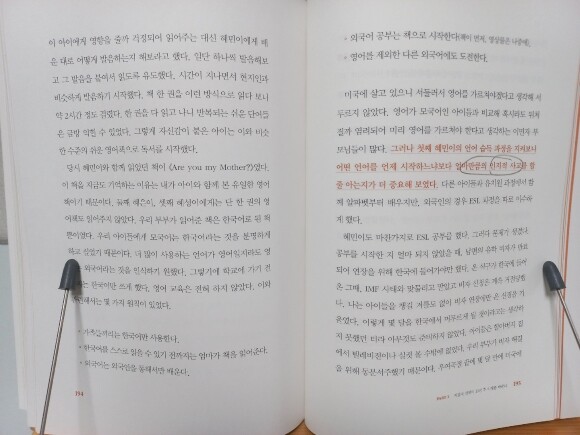 이 아이에게 영향을 줄까 걱정되어 읽어주는 대신 혜민이에게 배
운 대로 어떻게 발음하는지 해보라고 했다. 일단 하나씩 발음해보
고 그 발음을 붙여서 읽도록 유도했다. 시간이 지나면서 현지인과
비슷하게 발음하기 시작했다. 책 한 권을 이런 방식으로 읽다 보니
약 2시간 정도 걸렸다. 한 권을 다 읽고 나니 반복되는 쉬운 단어들
은 금방 익힐 수 있었다. 그렇게 자신감이 붙은 아이는 이와 비슷
한 수준의 쉬운 영어책을 계속 읽었다.
당시 혜민이와 함께 읽었던 책이 《Are you my Mother?》였다.
이 책을 지금도 기억하는 이유는 내가 아이와 함께 본 유일한 영어
책이기 때문이다. 둘째, 혜은이, 셋째 혜성이에게는 단 한 권의 영
어책도 읽어주지 않았다. 우리 부부가 읽어준 책은 한국어로 된 책
뿐이었다. 우리 아이들에게 모국어는 한국어라는 것을 분명하게
하고 싶었기 때문이다. 더 많이 사용하는 언어가 영어일지라도 영
외국어라는 것을 인식하기 원했다. 그렇기에 학교에 가기 전
는 한국어만 쓰게 했다. 영어 교육은 전혀 하지 않았다. 이와
해서는 몇 가지 원칙이 있었다.
• 가족들끼리는 한국어만 사용한다.
• 한국어를 스스로 읽을 수 있기 전까지는 엄마가 책을 읽어준다.
• 외국어는 외국인을 통해서만 배운다.
194
• 외국어 공부는 책으로 시작한다(책이 먼저, 영상물은 나중에).
• 영어를 제외한 다른 외국어에도 도전한다.
미국에 살고 있으니 서둘러서 영어를 가르쳐야겠다고 생각해 서
두르지 않았다. 영어가 모국어인 아이들과 비교해 혹시라도 뒤처
질까 염려되어 미리 영어를 가르쳐야 한다고 생각하는 이민자 부
모님들이 많다. 그러나 첫째 혜민이의 언어 습득 과정을 지켜보니
어떤 언어를 언제 시작하느냐보다 얼마만큼의 인지적 사고를 할
줄 아는지가 더 중요해 보였다. 다른 아이들과 유치원 과정부터 함
께 알파벳부터 배우지만, 외국인의 경우 ESL 과정을 따로 이수하
게 했다.
혜민이도 마찬가지로 ESL 공부를 했다. 그러다 문제가 생겼다.
공부를 시작한 지 얼마 되지 않았을 때, 남편의 유학 비자가 만료
되어 연장을 위해 한국에 들어가야만 했다. 온 식구가 한국에 들어
온 그때, IMF 사태와 맞물리고 만만고 비자 신청은 계속 거절당했
다. 나는 아이들을 챙길 겨를도 없이 비자 연장에만 온 신경을 기
울였다. 어떻게 몇 달을 한국에서 머무르게 될 것이라고는 생각하
지 못했던 터라 아무것도 준비하지 않았다. 아이들은 할아버지 집
에서 텔레비전이나 실컷 볼 수밖에 없었다. 우리 부부가 비자 해결
을 위해 동분서주했기 때문이다. 우여곡절 끝에 몇 달 만에 미국에
195